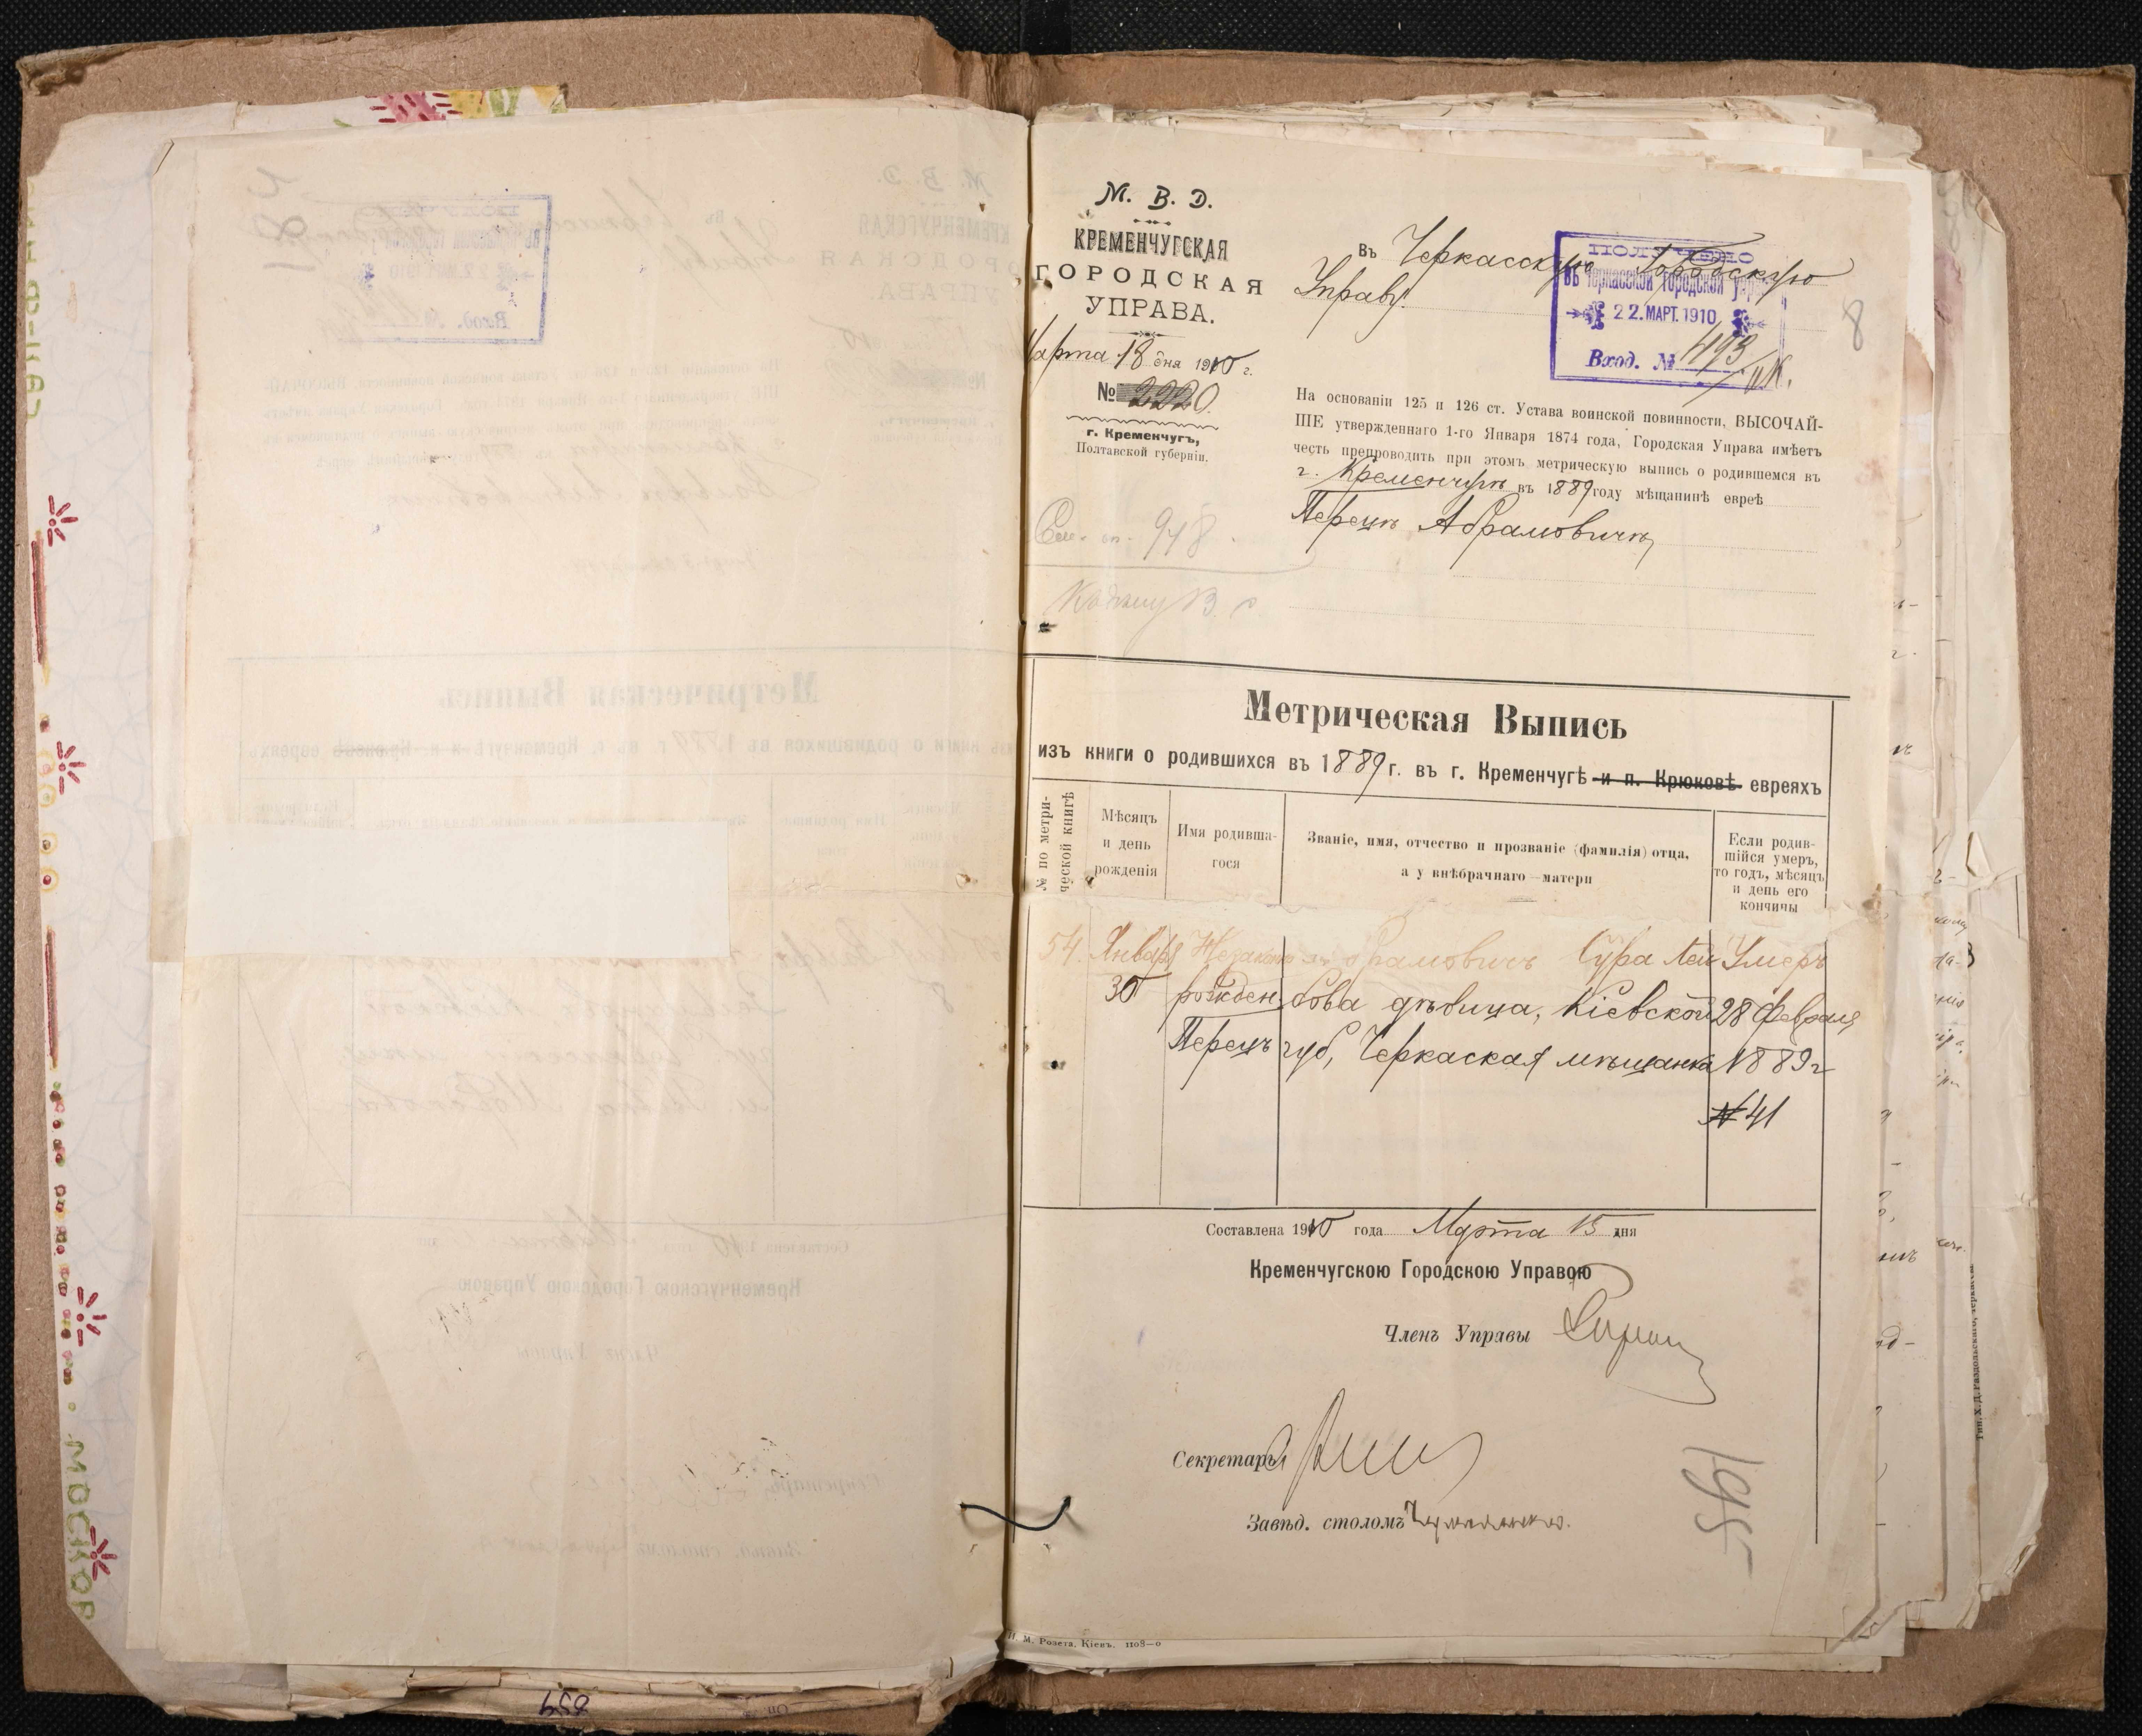 М. В. Д.
КРЕМЕНЧУГСКАЯ
ГОРОДСКАЯ
УПРАВА.
Марта 18 дня 1910 г.
№ 2220.
г. Кременчугъ,
Полтавской губерніи.
948
Въ Черкасскую Городскую
Управу.
ПОЛУЧЕНО
въ Черкасской городской управѣ
22. МАРТ. 1910
Вход. № 493
8
На основаніи 125 и 126 ст. Устава воинской повинности, ВЫСОЧАЙ-
ШЕ утвержденнаго 1-го Января 1874 года, Городская Управа имѣетъ
честь препроводить при этомъ метрическую выпись о родившемся въ
г. Кременчугѣ въ 1889 году мѣщанинѣ евреѣ
Перецъ Абрамовичъ
Метрическая Выпись
изъ книги о родившихся въ 1889 г. въ г. Кременчугѣ и п. Крюковѣ евреяхъ
№ по метри-
ческой книгѣ
Мѣсяцъ
и день
рожденія
Имя родивша-
гося
Званіе, имя, отчество и прозваніе (фамилія) отца,
а у внѣбрачнаго — матери
Если родив-
шійся умеръ,
то годъ, мѣсяцъ
и день его
кончины
54. Января Незаконно Абрамовичъ Сура Лей Умеръ
30 рожден. бова дѣвица, Кіевской 28 Февраля
Перецъ губ, Черкаская мѣщанка 1889 г
№ 41
Составлена 1910 года Марта 15 дня
Кременчугскою Городскою Управою
Членъ Управы
Секретарь
Завѣд. столомъ
195
И. М. Розета, Кіевъ. 1108—0
859